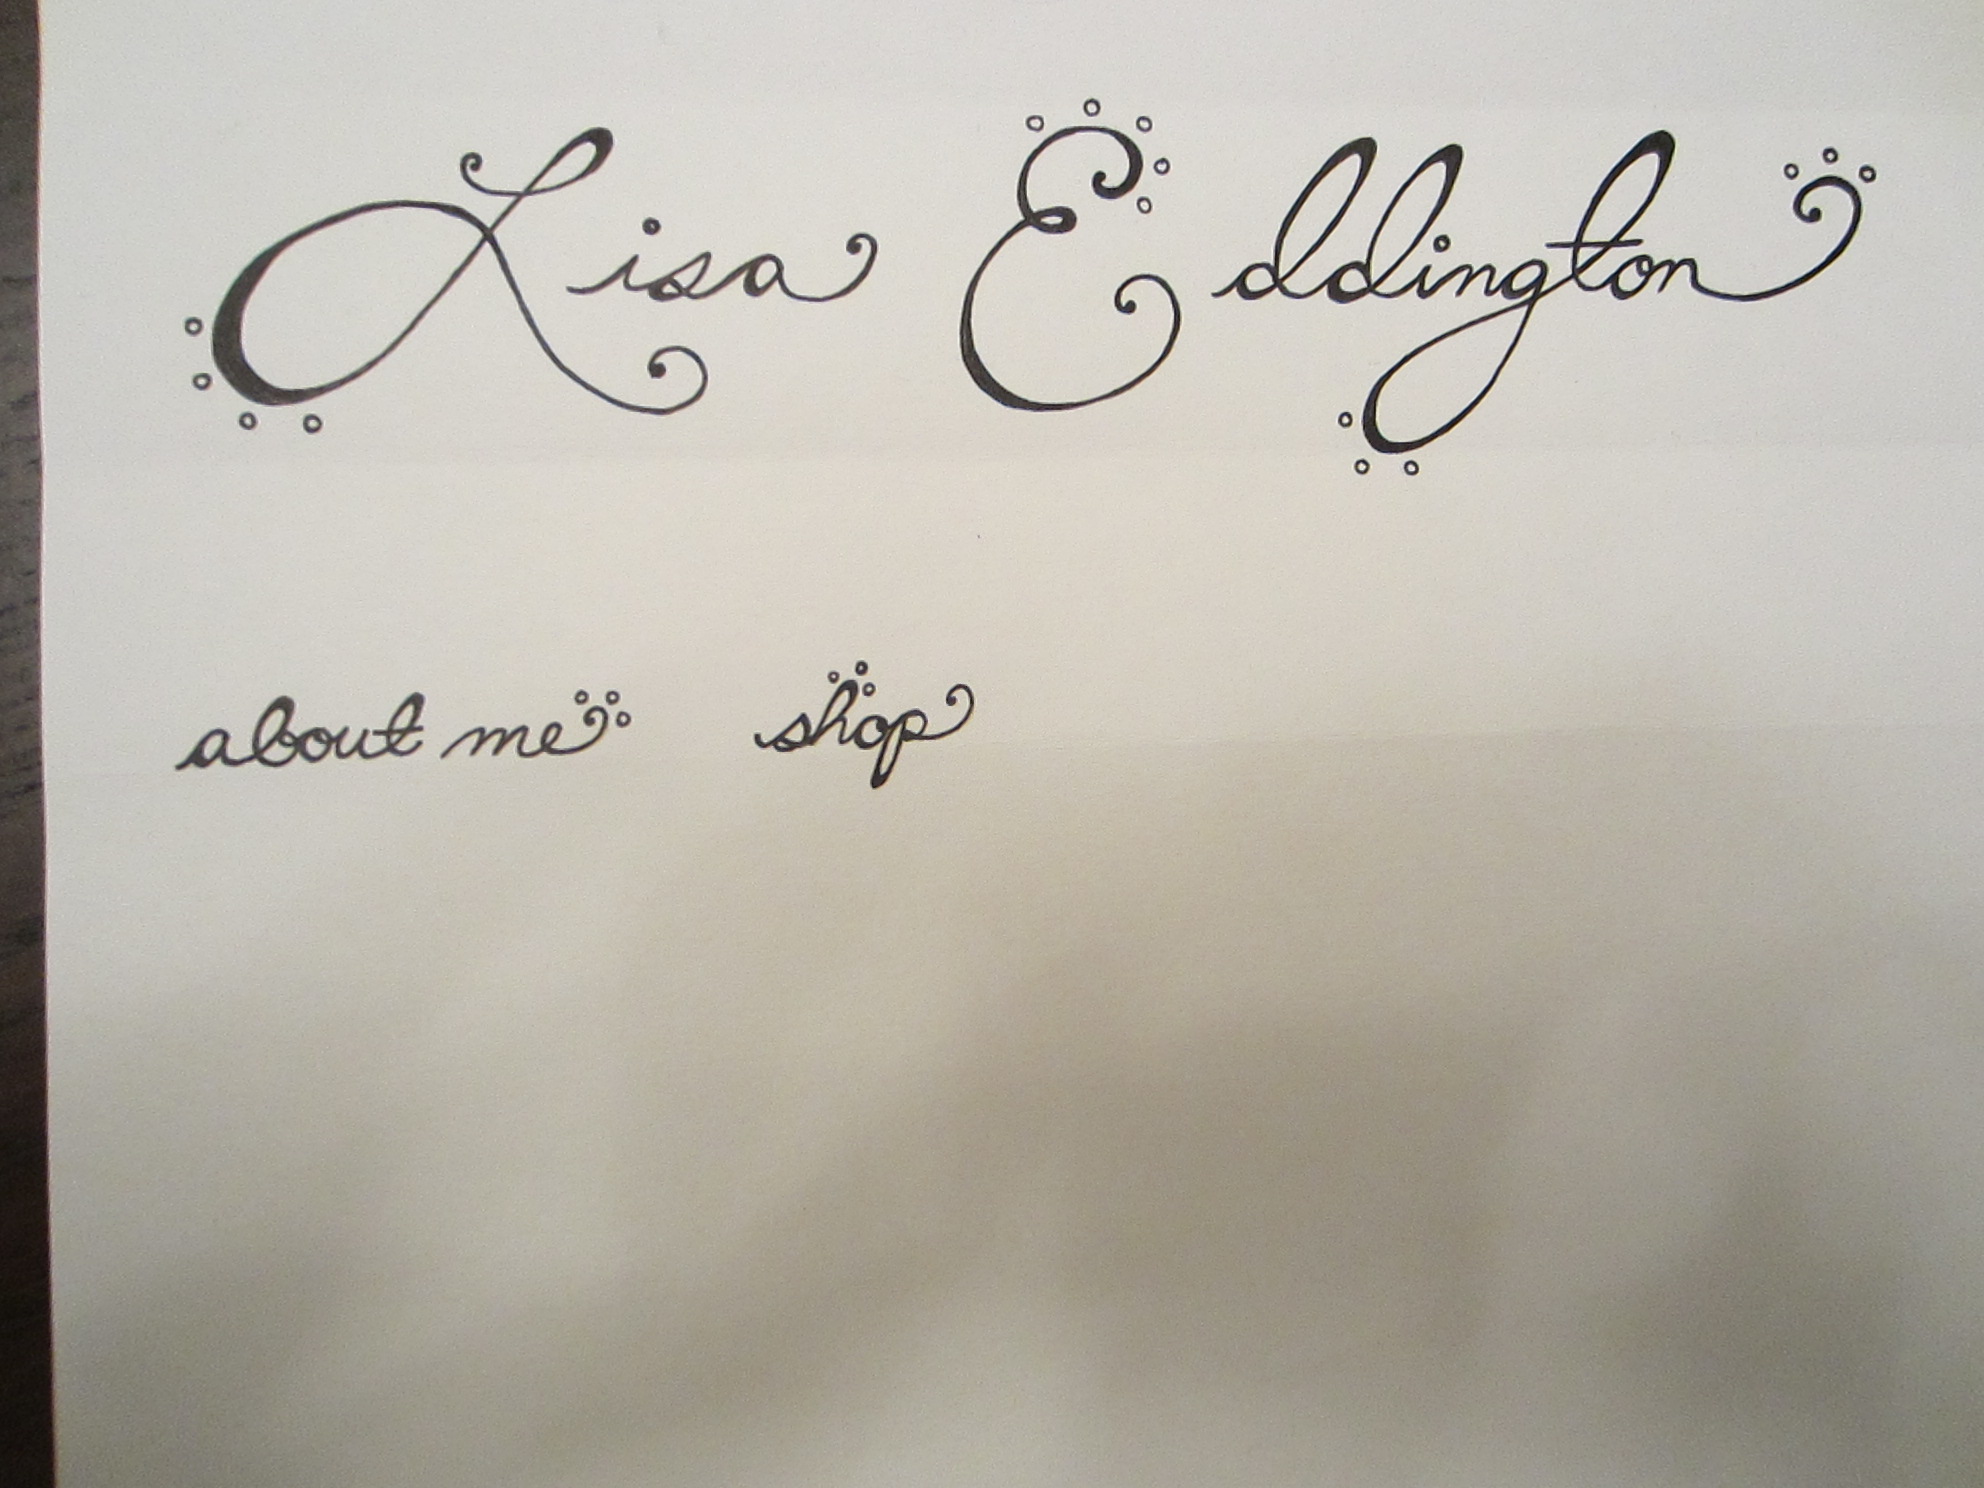 Lisa Eddington
about me shop